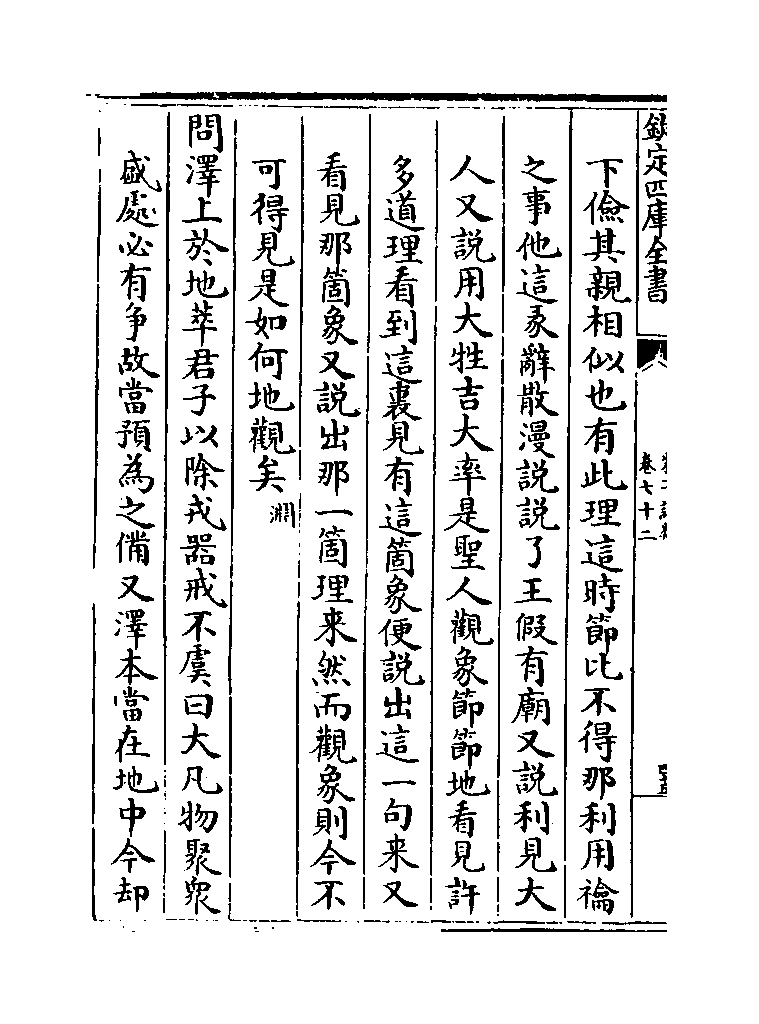 欽定四庫全書
卷七十二
下儉其親相似也有此理這時節比不得那利用禴
之事他這彖辭散漫説説了王假有廟又説利見大
人又説用大牲吉大率是聖人觀象節節地看見許
多道理看到這裏見有這箇象便説出這一句来又
看見那箇象又説出那一箇理来然而觀象則今不
可得見是如何地觀矣淵
問澤上於地萃君子以除戎器戒不虞曰大凡物聚衆
盛處必有争故當預為之備又澤本當在地中今却